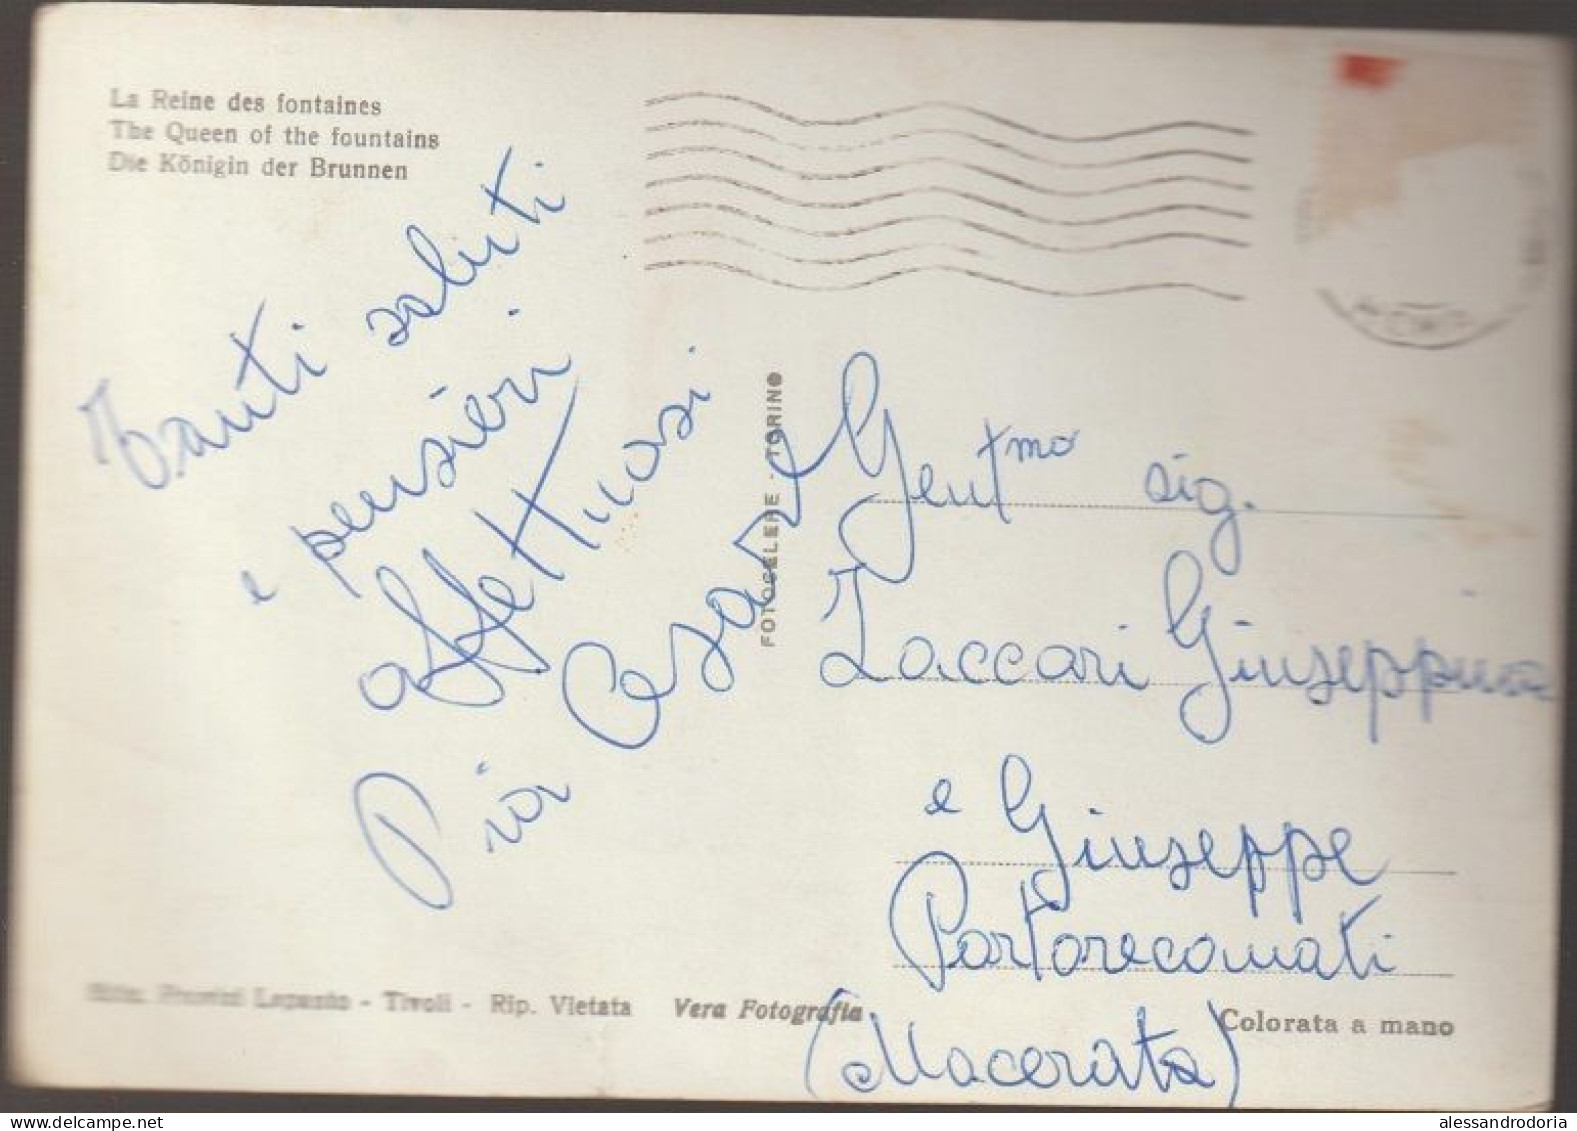 La Reine des fontaines
The Queen of the fountains
Die Königin der Brunnen
Tanti saluti
e pensieri
affettuosi
Pia Cesare
FOTOCELERE - TORINO
Gent.mo sig.
Zaccari Giuseppina
e Giuseppe
Portorecanati
(Macerata)
Lepanto - Tivoli - Rip. Vietata Vera Fotografia
Colorata a mano
alessandrodoria